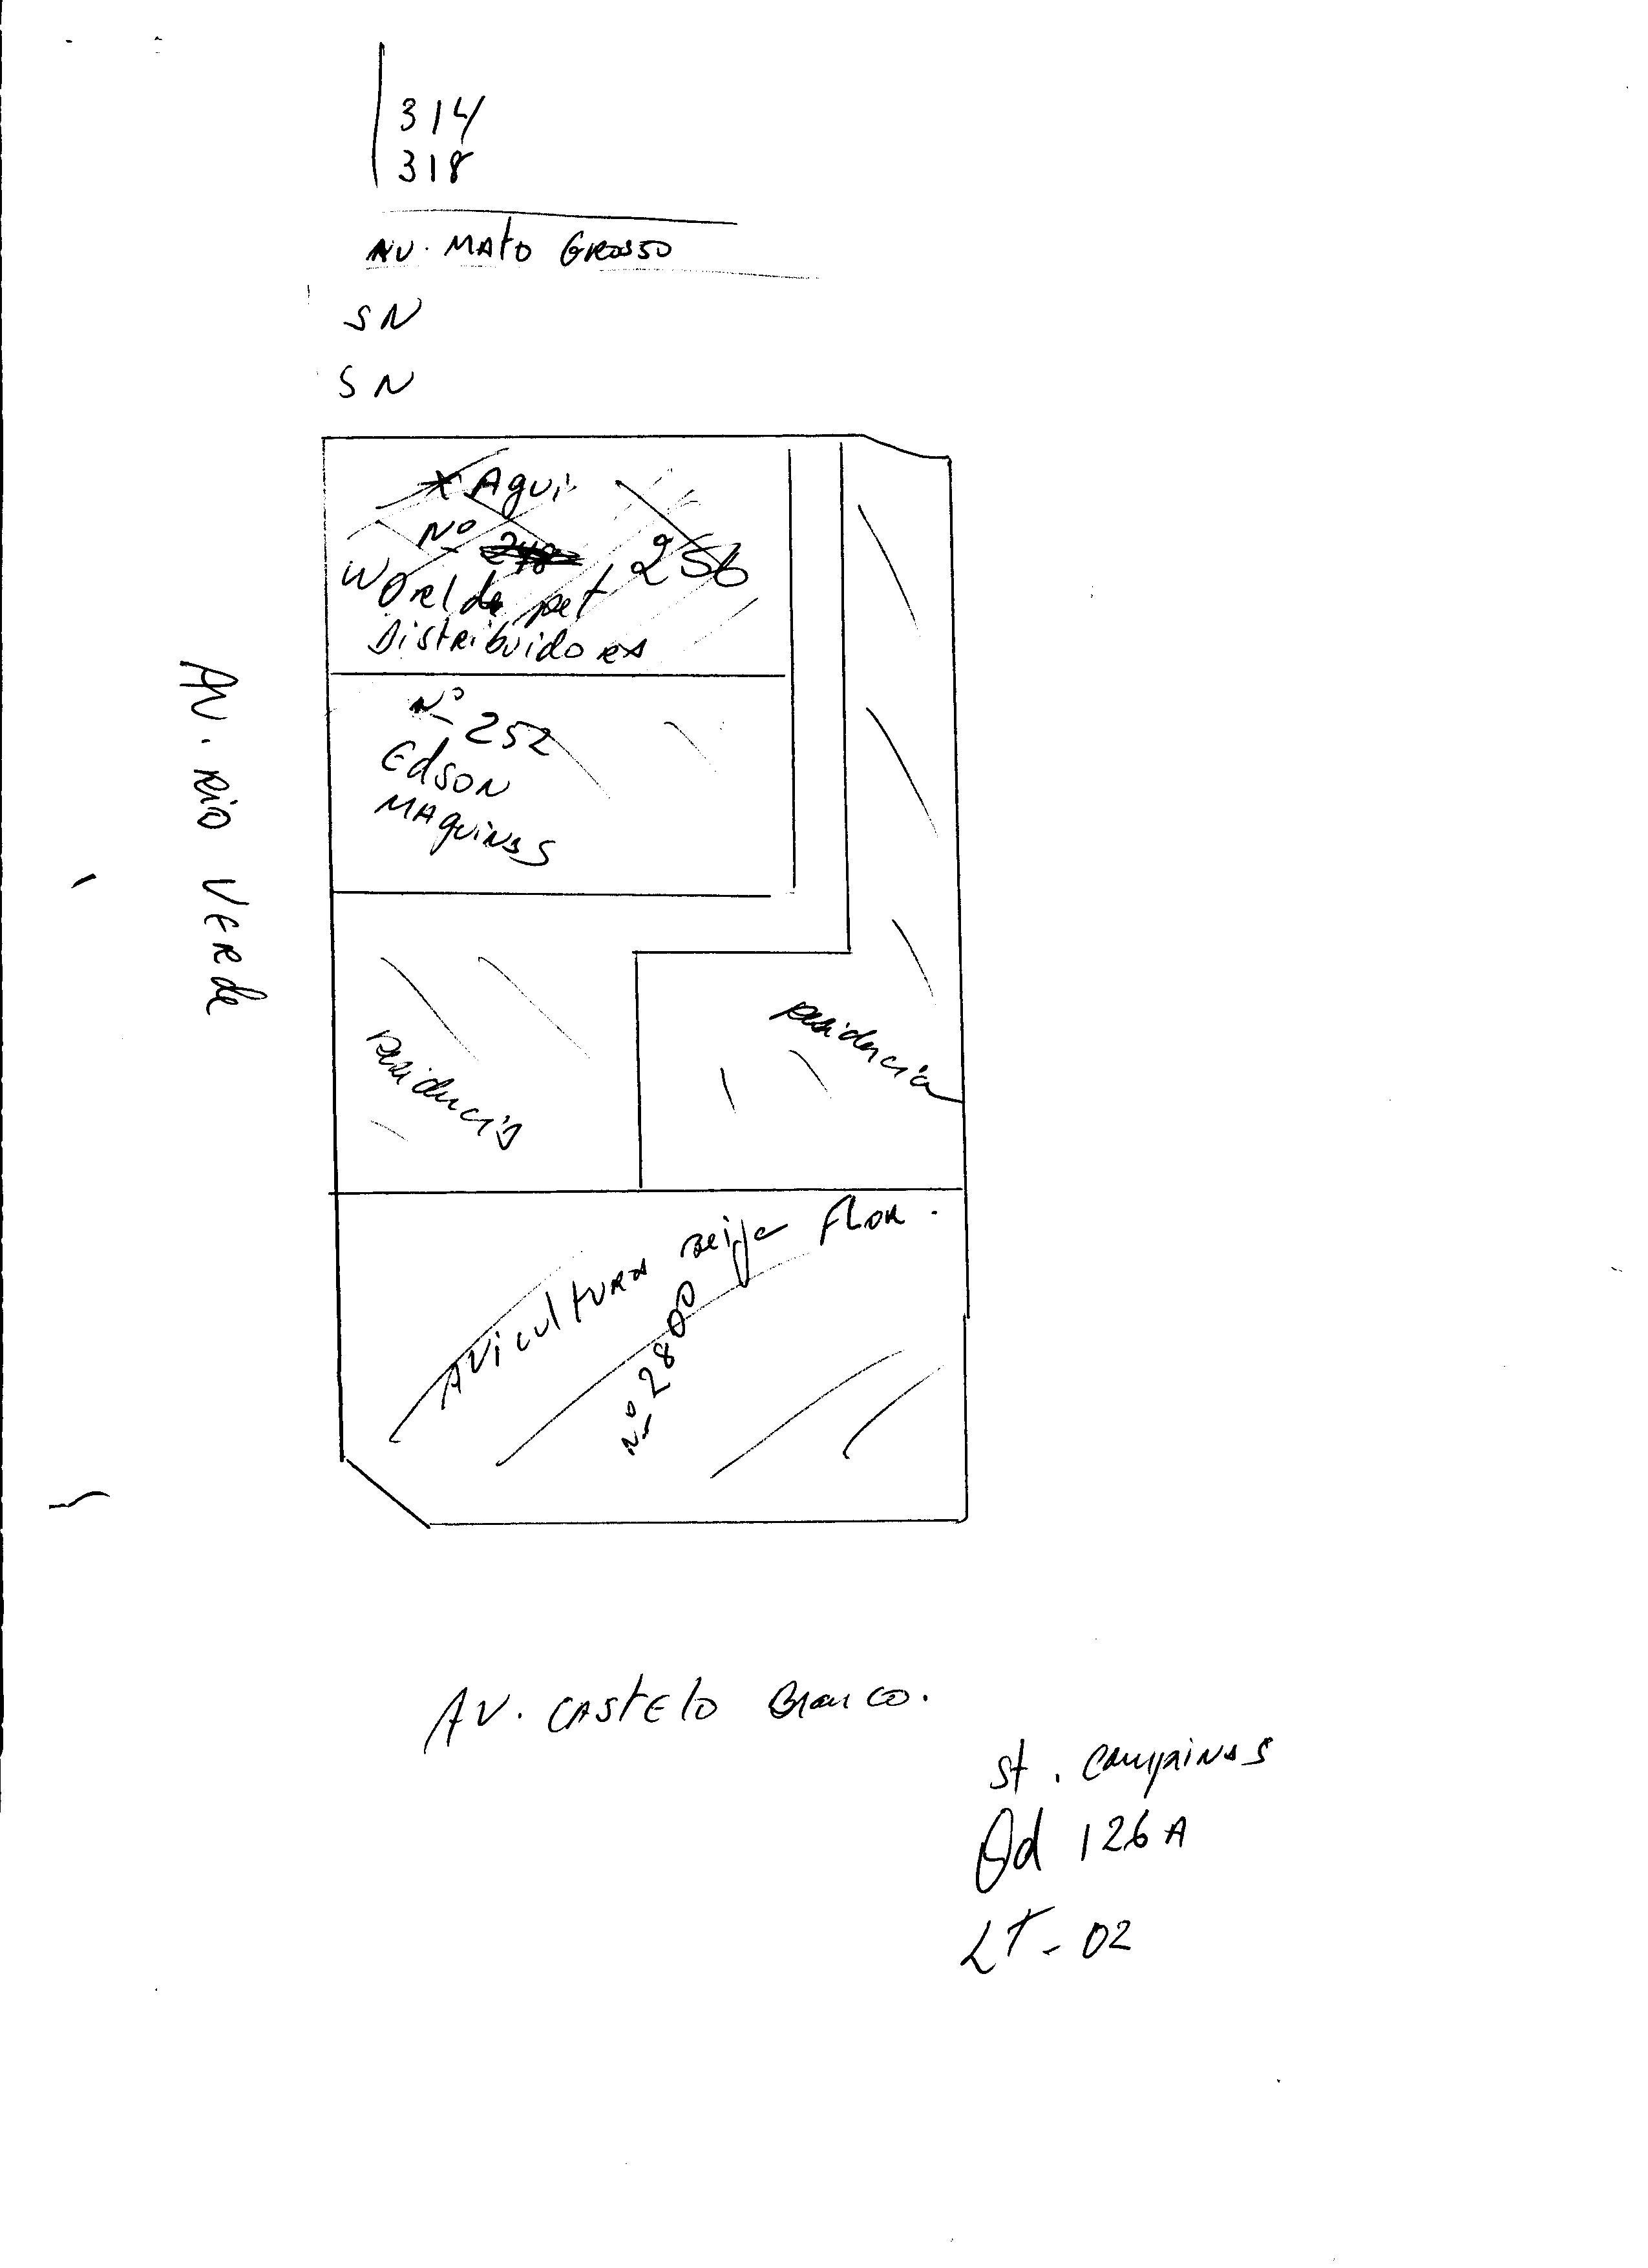 314
318
AV. MATO GROSSO
SN
SN
X Aqui
Nº 256
World pet
Distribuidora
Nº 252
Edson
Maquinas
AV. RIO VERde
residencia
residencia
Avicultura Beija Flor.
Nº 2800
AV. CASTELO Branco.
St. Campinas
Qd 126A
LT - 02